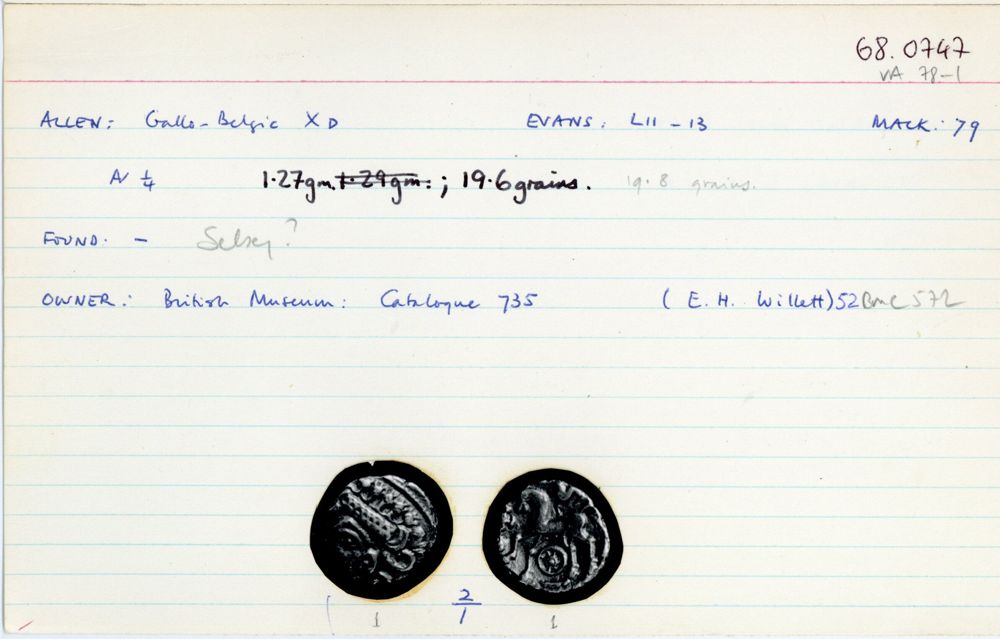 68.0747
VA 78-1
ALLEN: Gallo-Belgic XD EVANS: LII-13 MACK: 79
N 1/4 1.27gm. 1.29gm. ; 19.6 grains. 19.8 grains.
FOUND. - Selsey?
OWNER: British Museum: Catalogue 735 (E. H. Willett) 52 BMC 572
2/1
1 1